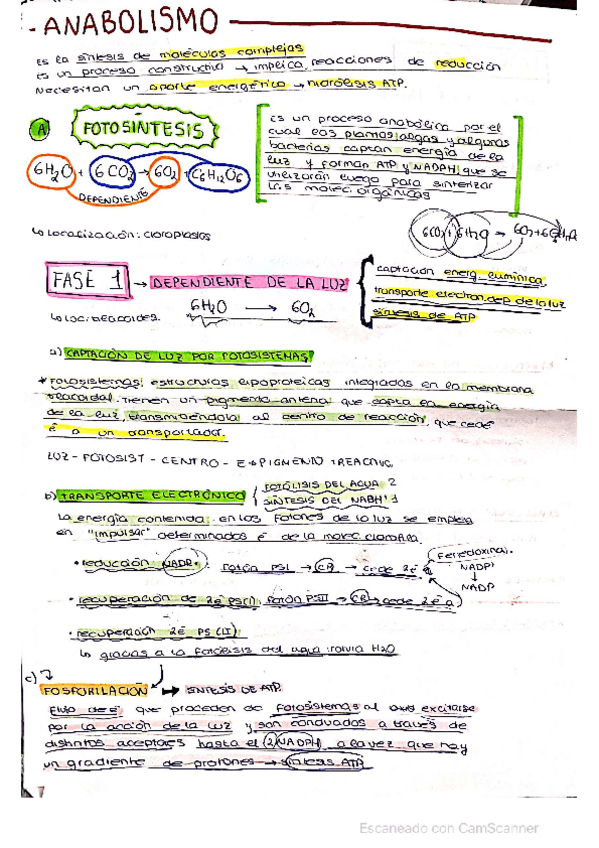 - ANABOLISMO
Es la síntesis de moléculas complejas
Es un proceso constructivo → implica reacciones de reducción
Necesitan un aporte energético → hidrólisis ATP.
A FOTOSÍNTESIS
Es un proceso anabólico por el
cual las plantas, algas y algunas
bacterias captan energía de la
luz y forman ATP y NADPH que se
utilizarán luego para sintetizar
las moléc. orgánicas
6H₂O + 6CO₂ → 6O₂ + C₆H₁₂O₆
DEPENDIENTE
↳ Localización: cloroplastos
FASE 1 → DEPENDIENTE DE LA LUZ
6H₂O → 6O₂
captación energ. lumínica
transporte electron. dep. de la luz
síntesis de ATP
a) CAPTACIÓN DE LUZ POR FOTOSISTEMAS
* Fotosistemas: estructuras lipoproteicas integradas en la membrana
tilacoidal, tienen un pigmento antena que capta la energía
de la luz, transmitiéndola al centro de reacción, que cede
é a un transportador.
LUZ - FOTOSIST - CENTRO - E → PIGMENTO
b) TRANSPORTE ELECTRÓNICO
FOTÓLISIS DEL AGUA 2
SÍNTESIS DEL NADH 1
La energía contenida en los fotones de la luz se emplea
en "impulsar" determinados é de la moléc clorofila.
• reducción NADP+: Fotón PSI → → cede 2 é a
Ferredoxina.
NADP+
↓
NADP
• recuperación de 2é PS(I): fotón PSII → → cede 2 é a
• recuperación 2é PS (II):
↳ gracias a la fotólisis del agua H₂O
c) FOSFORILACIÓN → SÍNTESIS DE ATP
Flujo de é que proceden de fotosistemas al excitarse
por la acción de la luz y son conducidos a través de
distintos aceptores hasta el (2) NADPH a la vez que hay
un gradiente de protones → síntesis ATP
Escaneado con CamScanner